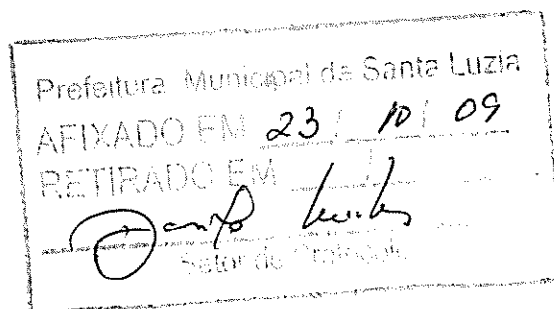 Prefeitura Municipal de Santa Luzia
AFIXADO EM 23/10/09
RETIRADO EM / /
Setor de Protocolo